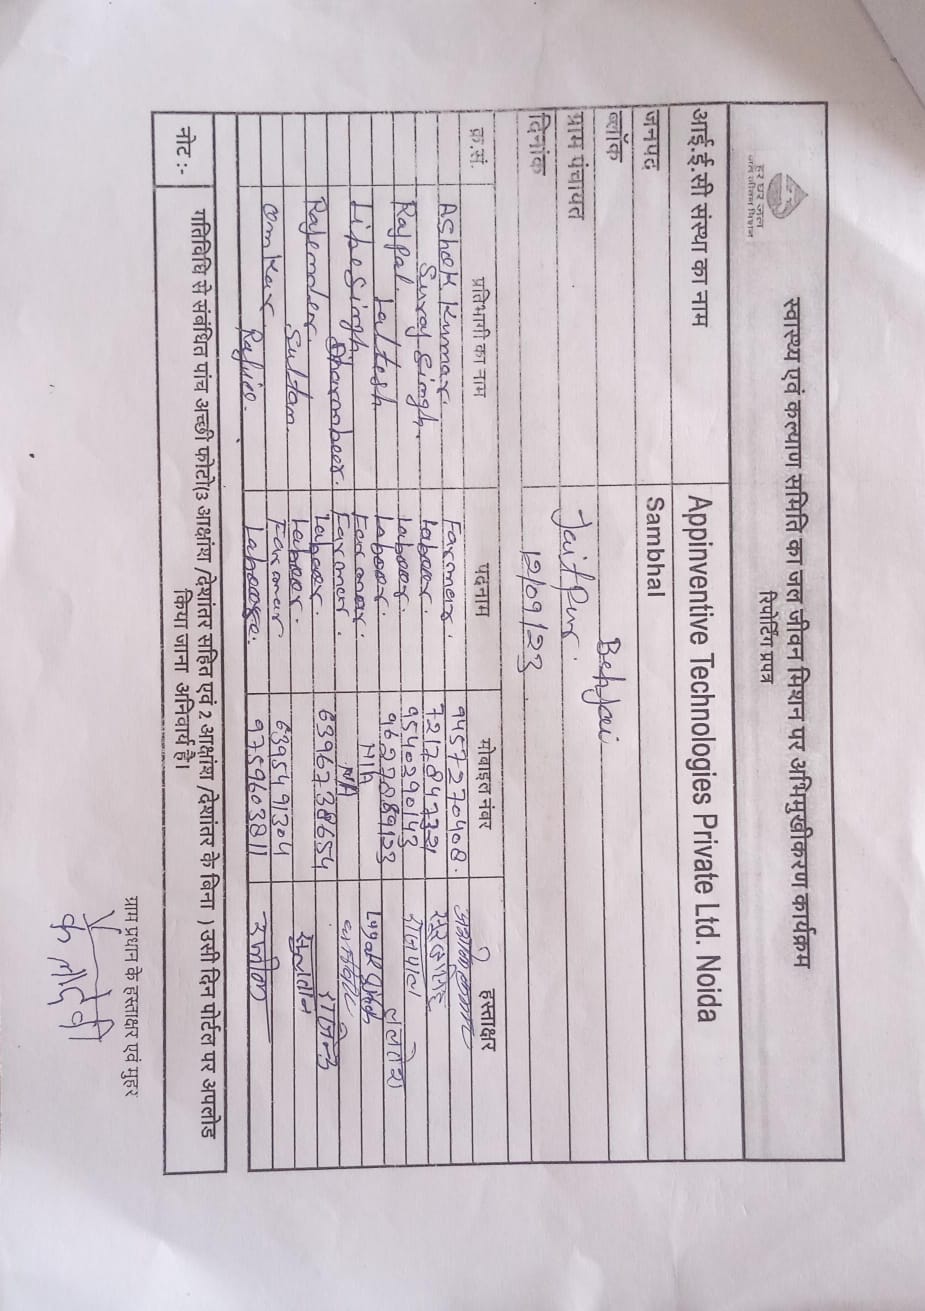 हर घर जल
जल जीवन मिशन
स्वास्थ्य एवं कल्याण समिति का जल जीवन मिशन पर अभिमुखीकरण कार्यक्रम
रिपोर्टिंग प्रपत्र
आई.ई.सी संस्था का नाम Appinventive Technologies Private Ltd. Noida
जनपद Sambhal
ब्लॉक Behjoi
ग्राम पंचायत Jaitpur.
दिनांक 12/09/23
क्र.सं. प्रतिभागी का नाम पदनाम मोबाइल नंबर हस्ताक्षर
Ashok Kumar. Farmer. 9457270408.
Suraj Singh. Laboor. 7217847321
Rajpal. Laboor. 9540390143 राजपाल
Laltesh Laboor. 9627889123 ललतेश
Singh. Farmer. N/A
Dharambeer. Farmer. N/A
Rajender. Laboor. 6396738654
Sultan. Laboor. सुलतान
Omkar. Farmer 6395491304
9759603811
नोट :- गतिविधि से संबंधित पांच अच्छी फोटो(3 आक्षांश /देशांतर सहित एवं 2 आक्षांश /देशांतर के बिना ) उसी दिन पोर्टल पर अपलोड
किया जाना अनिवार्य है।
ग्राम प्रधान के हस्ताक्षर एवं मुहर